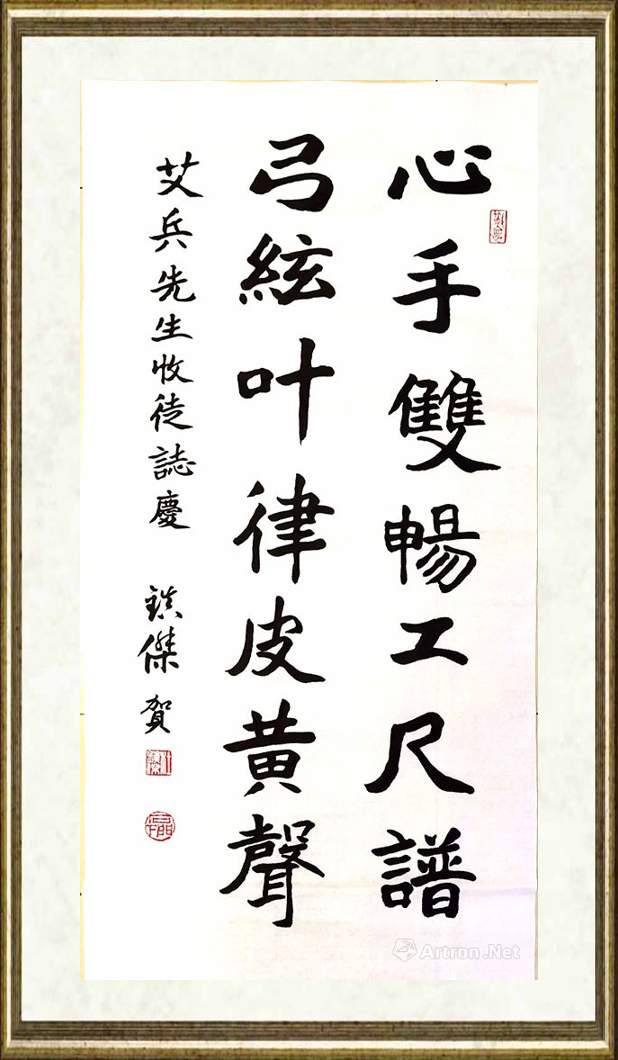 心手雙暢工尺譜
弓絃叶律皮黃聲
艾兵先生收徒誌慶
鎮傑賀
Artron.Net